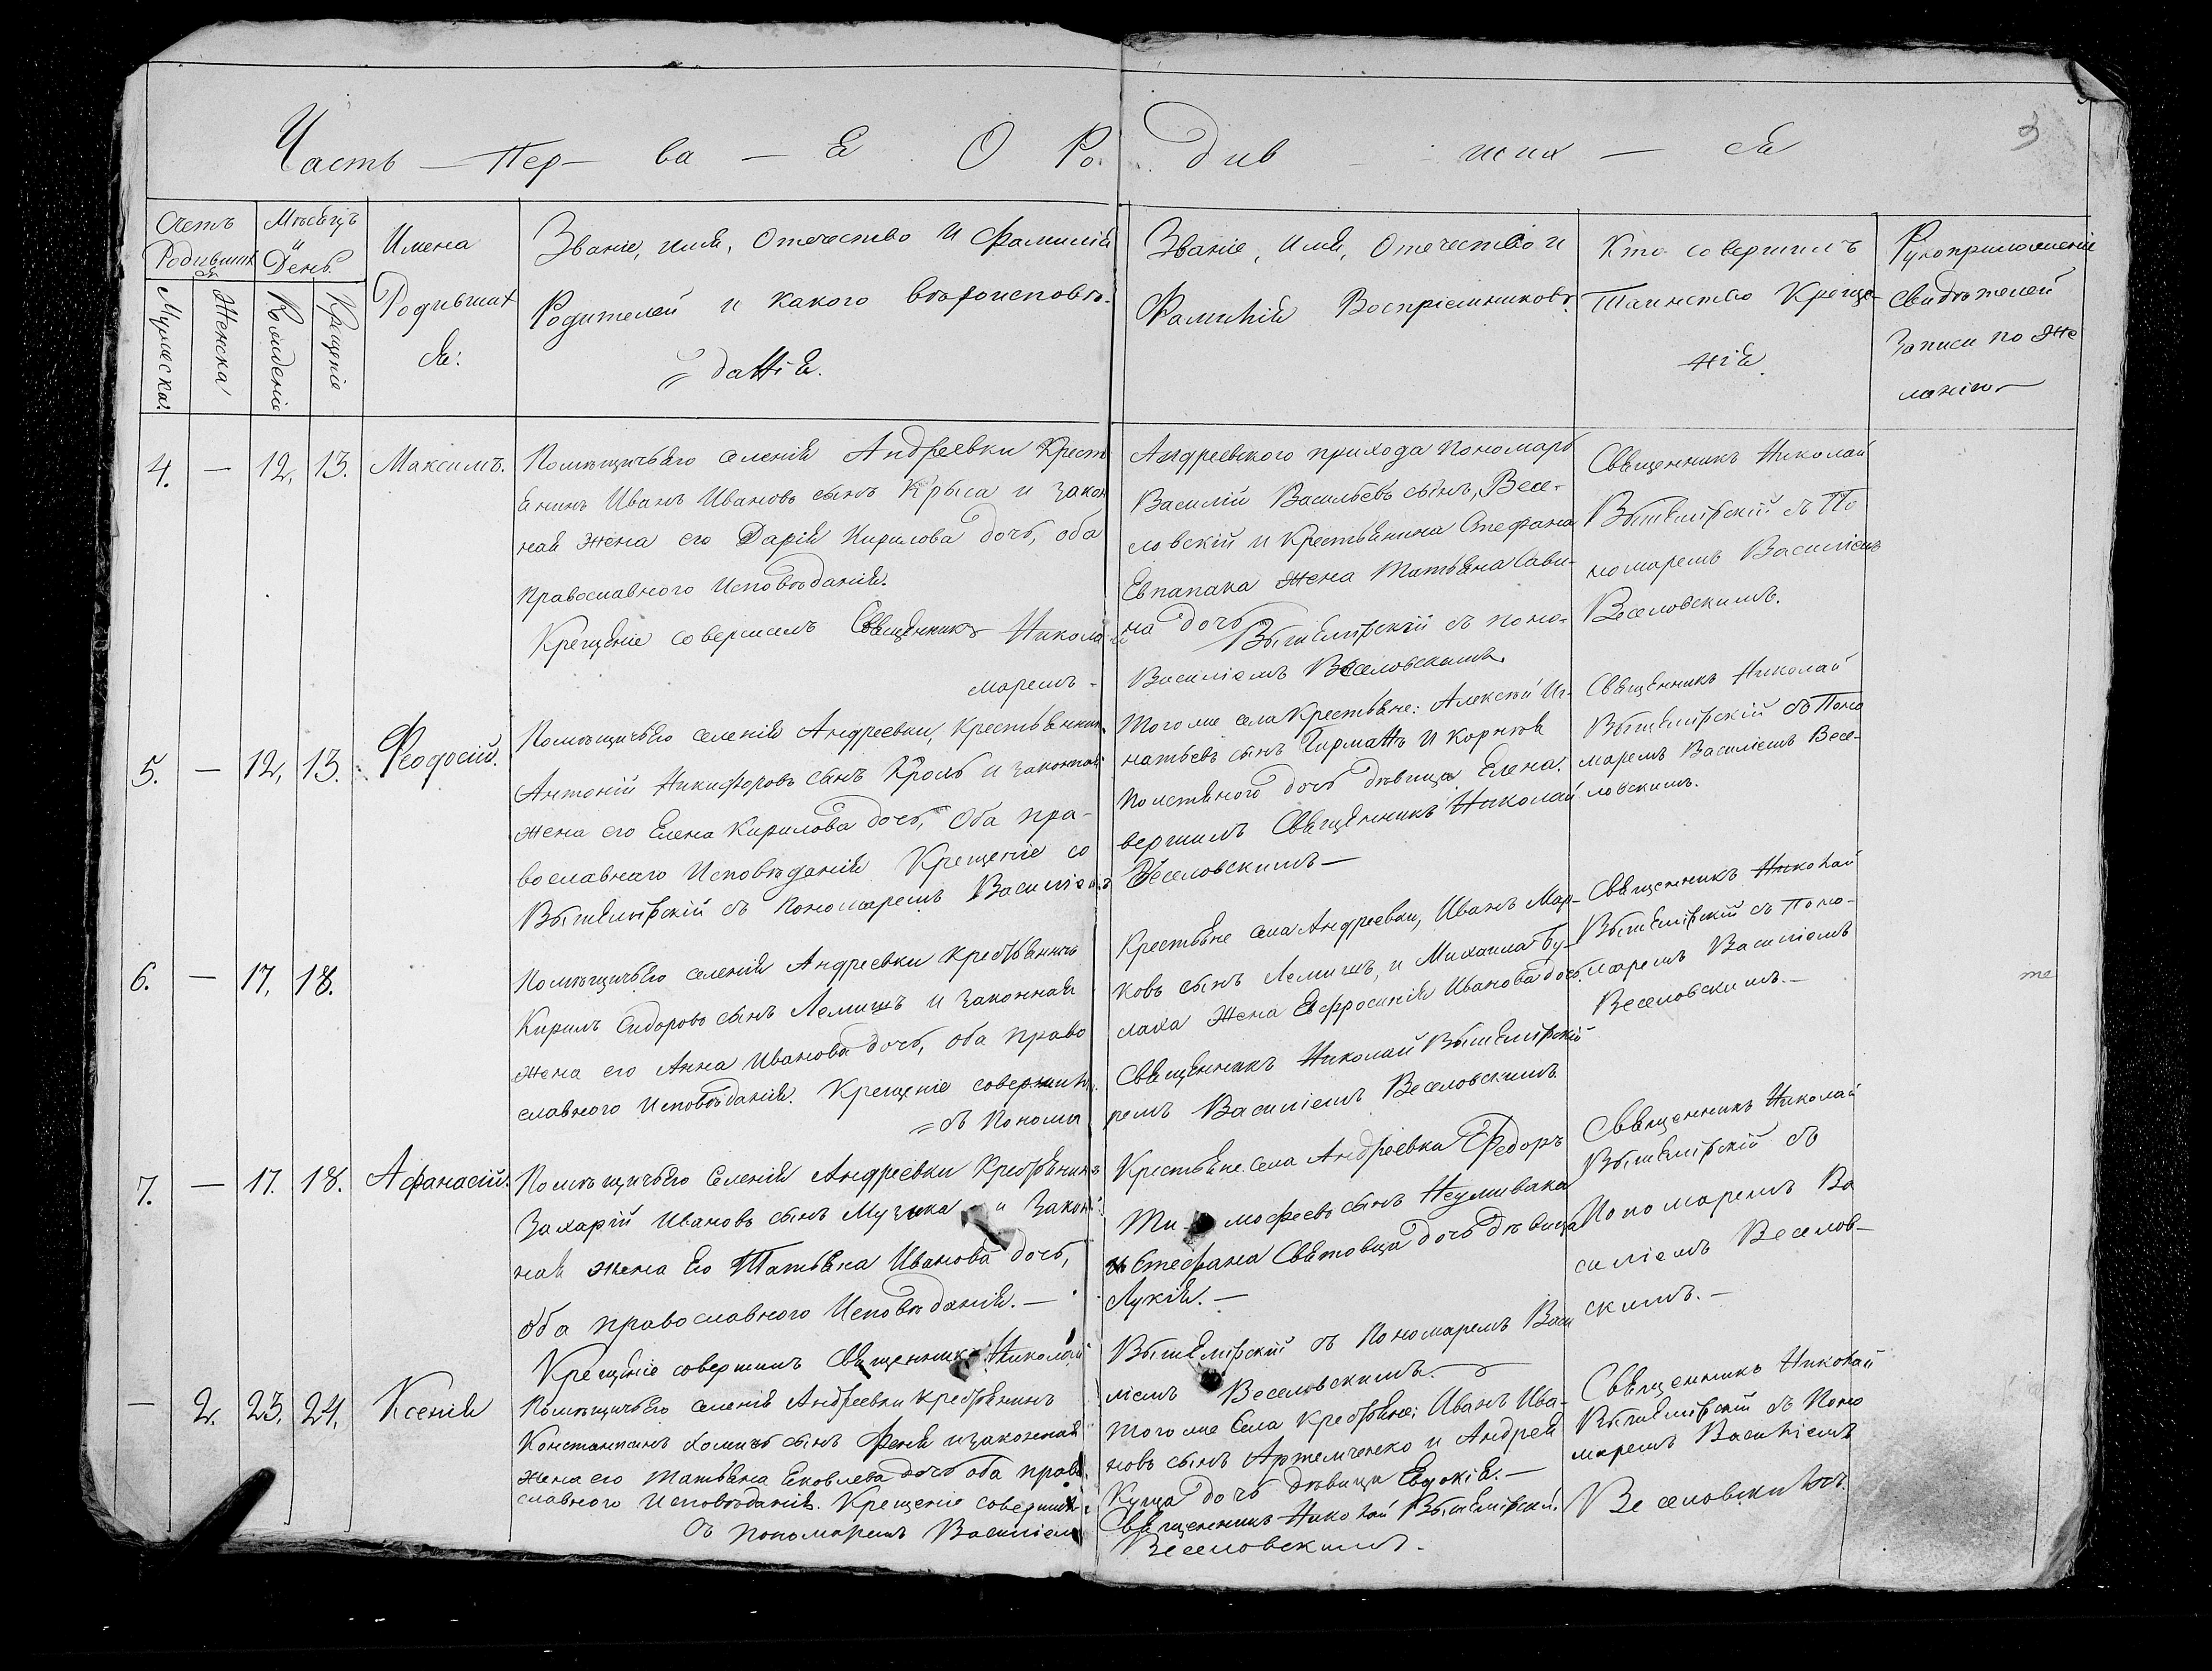 Часть — Пер — ва — Я О Ро. див — ших — ся
3
Счетъ
Родивших
ся
Мѣсяцъ
и
День.
Имена
Родивших
ся.
Званіе, имя, Отечество и Фамилія
Родителей и какого вѣроисповѣ-
данія.
Званіе, Имя, Отечество и
Фамилія Воспріемниковъ.
Кто совершилъ
Таинство Креще-
нія.
Рукоприложеніе
Свидѣтелей
Записи по же
ланію
Мужеска.
Женска
Рожденіе
Крещеніе
4. — 12. 13. Максимъ.
Помѣщичьяго селенія Андреевки Крест
янинъ Иванъ Ивановъ сынъ Крыса и закон
ная жена его Дарія Кирилова дочь, оба
православного Исповѣданія.
Крещеніе совершилъ Священникъ Никола
маремъ
Андреевского прихода пономарь
Василій Васильевъ сынъ, Весе-
ловскій и Крестьянина Стефана
Евпапака жена Татьяна Сави-
на дочь
Вышемірскій съ поно-
Василіемъ Веселовскимъ.
Священникъ Николай
Вышемірскій съ По
номаремъ Василіемъ
Веселовскимъ.
5. — 12, 13. Феодосій.
Помѣщичьяго селенія Андреевки, Крестьянинъ
Антоній Никифоровъ сынъ Кроль и законная
жена его Елена Кирилова дочь, Оба пра-
вославнаго Исповѣданія Крещеніе со
Вышемірскій съ пономаремъ Василіемъ
Того же села Крестьяне: Алексѣй Иг-
натьевъ сынъ Гирманъ и Корнія
Полстяного дочь дѣвица Елена.
вершилъ Священникъ Николай
Веселовскимъ —
Священникъ Николай
Вышемірскій съ Поно
маремъ Василіемъ Весе-
ловскимъ.
6. — 17. 18.
Помѣщичьяго селенія Андреевки Крестьянинъ
Кирилъ Сидоровъ сынъ Лемишъ и законная
жена его Анна Иванова дочь, оба право
славного Исповѣданія. Крещеніе совершилъ
съ Понома
Крестьяне села Андреевки, Иванъ Мар-
ковъ сынъ Лемишъ, и Михаила Бу-
лаха жена Евфросинія Иванова дочь.
Священникъ Николай Вышемірскій
ремъ Василіемъ Веселовскимъ
Священникъ Николай
Вышемірскій съ Поно-
маремъ Василіемъ
Веселовскимъ. —
7. — 17. 18. Афанасій.
Помѣщичьяго Селенія Андреевки Крестьянинъ
Захарій Ивановъ сынъ Музыка и Закон
ная жена Его Татьяна Иванова дочь,
оба православного Исповѣданія. —
Крещеніе совершилъ Священникъ Николай
Крестьяне села Андреевки Федоръ
Тимофеевъ сынъ Неумивака
и Стефана Святовца дочь дѣвица
Лукія. —
Вышемірскій съ Пономаремъ Васи
ліемъ Веселовскимъ. —
Священникъ Николай
Вышемірскій съ
Пономаремъ Ва
силіемъ Веселов-
скимъ. —
— 2. 23. 24. Ксенія
Помѣщичьяго селенія Андреевки крестьянинъ
Константинъ Хомичъ сынъ Феня и законная
жена его Татьяна Яковлева дочь оба право
славного Исповѣданія. Крещеніе совершилъ
Съ Пономаремъ Василіем
Того же Села Крестьяне; Иванъ Ива-
новъ сынъ Артемченко и Андрея
Куца дочь дѣвица Евдокія. —
Священникъ Николай Вышемірскій.
Веселовскимъ.
Священникъ Николай
Вышемірскій съ Поно
маремъ Василіемъ
Веселовскимъ.